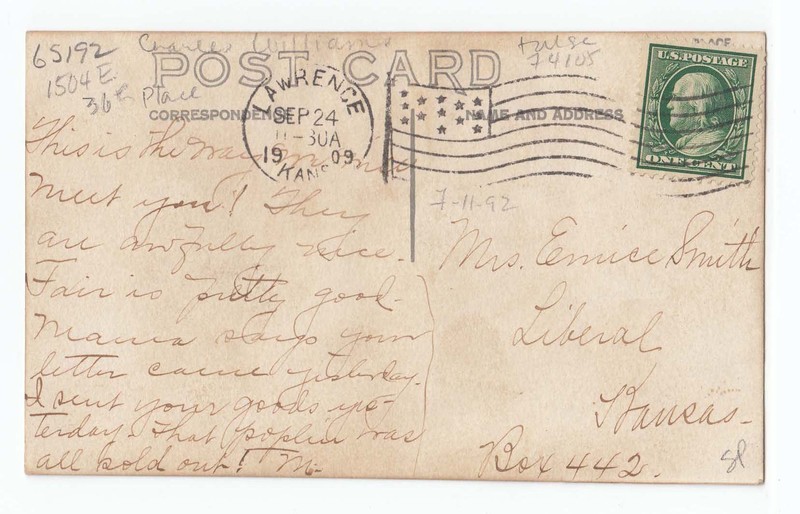 65192
Charles Williams
Tulsa
74105
1504 E.
36th Place
POST CARD
CORRESPONDENCE
NAME AND ADDRESS
PLACE
LAWRENCE
SEP 24
11-30A
1909
KANS
U.S. POSTAGE
ONE CENT
7-11-92
This is the way
meet you! They
are awfully nice.
Fair is pretty good.
Mama says your
letter came yesterday.
I sent your goods yes-
terday. That poplin was
all sold out! M.
Mrs. Emice Smith
Liberal
Kansas.
Box 442.